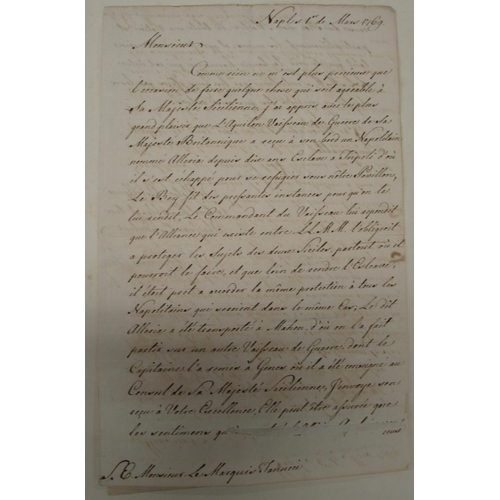 Naples 1r. de Mars 1769
Monsieur
Comme rien ne m'est plus precieux que
l'occasion de faire quelque chose qui soit agréable à
Sa Majesté Sicilienne, j'ai appris avec le plus
grand plaisir que L'Aquilon Vaisseau de Guerre de Sa
Majesté Britannique a reçu à son bord un Napolitain
nommé Alleria depuis dix ans Esclave à Tripoli d'où
il s'est échappé pour se refugier sous nôtre Pavillon,
Le Bey fit des pressantes instances pour qu'on le
lui rendit, Le Commandant du Vaisseau lui repondit
que l'Alliance qui existe entre LL.MM. l'obligeoit
a proteger les Sujets des deux Siciles partout où il
pourroit le faire, et que loin de rendre l'Esclave,
il étoit pret a accorder la même protection à tous les
Napolitains qui seroient dans le même Cas, Le dit
Alleria a été transporté à Mahon, d'où on l'a fait
partir sur un autre Vaisseau de Guerre, dont le
Capitaine l'a remis à Genes où il a été consigné au
Consul de Sa Majesté Sicilienne, J'envoye son
reçu à Votre Excellence, Elle peut être assurée que
les sentimens
S.E. Monsieur Le Marquis Tanucci